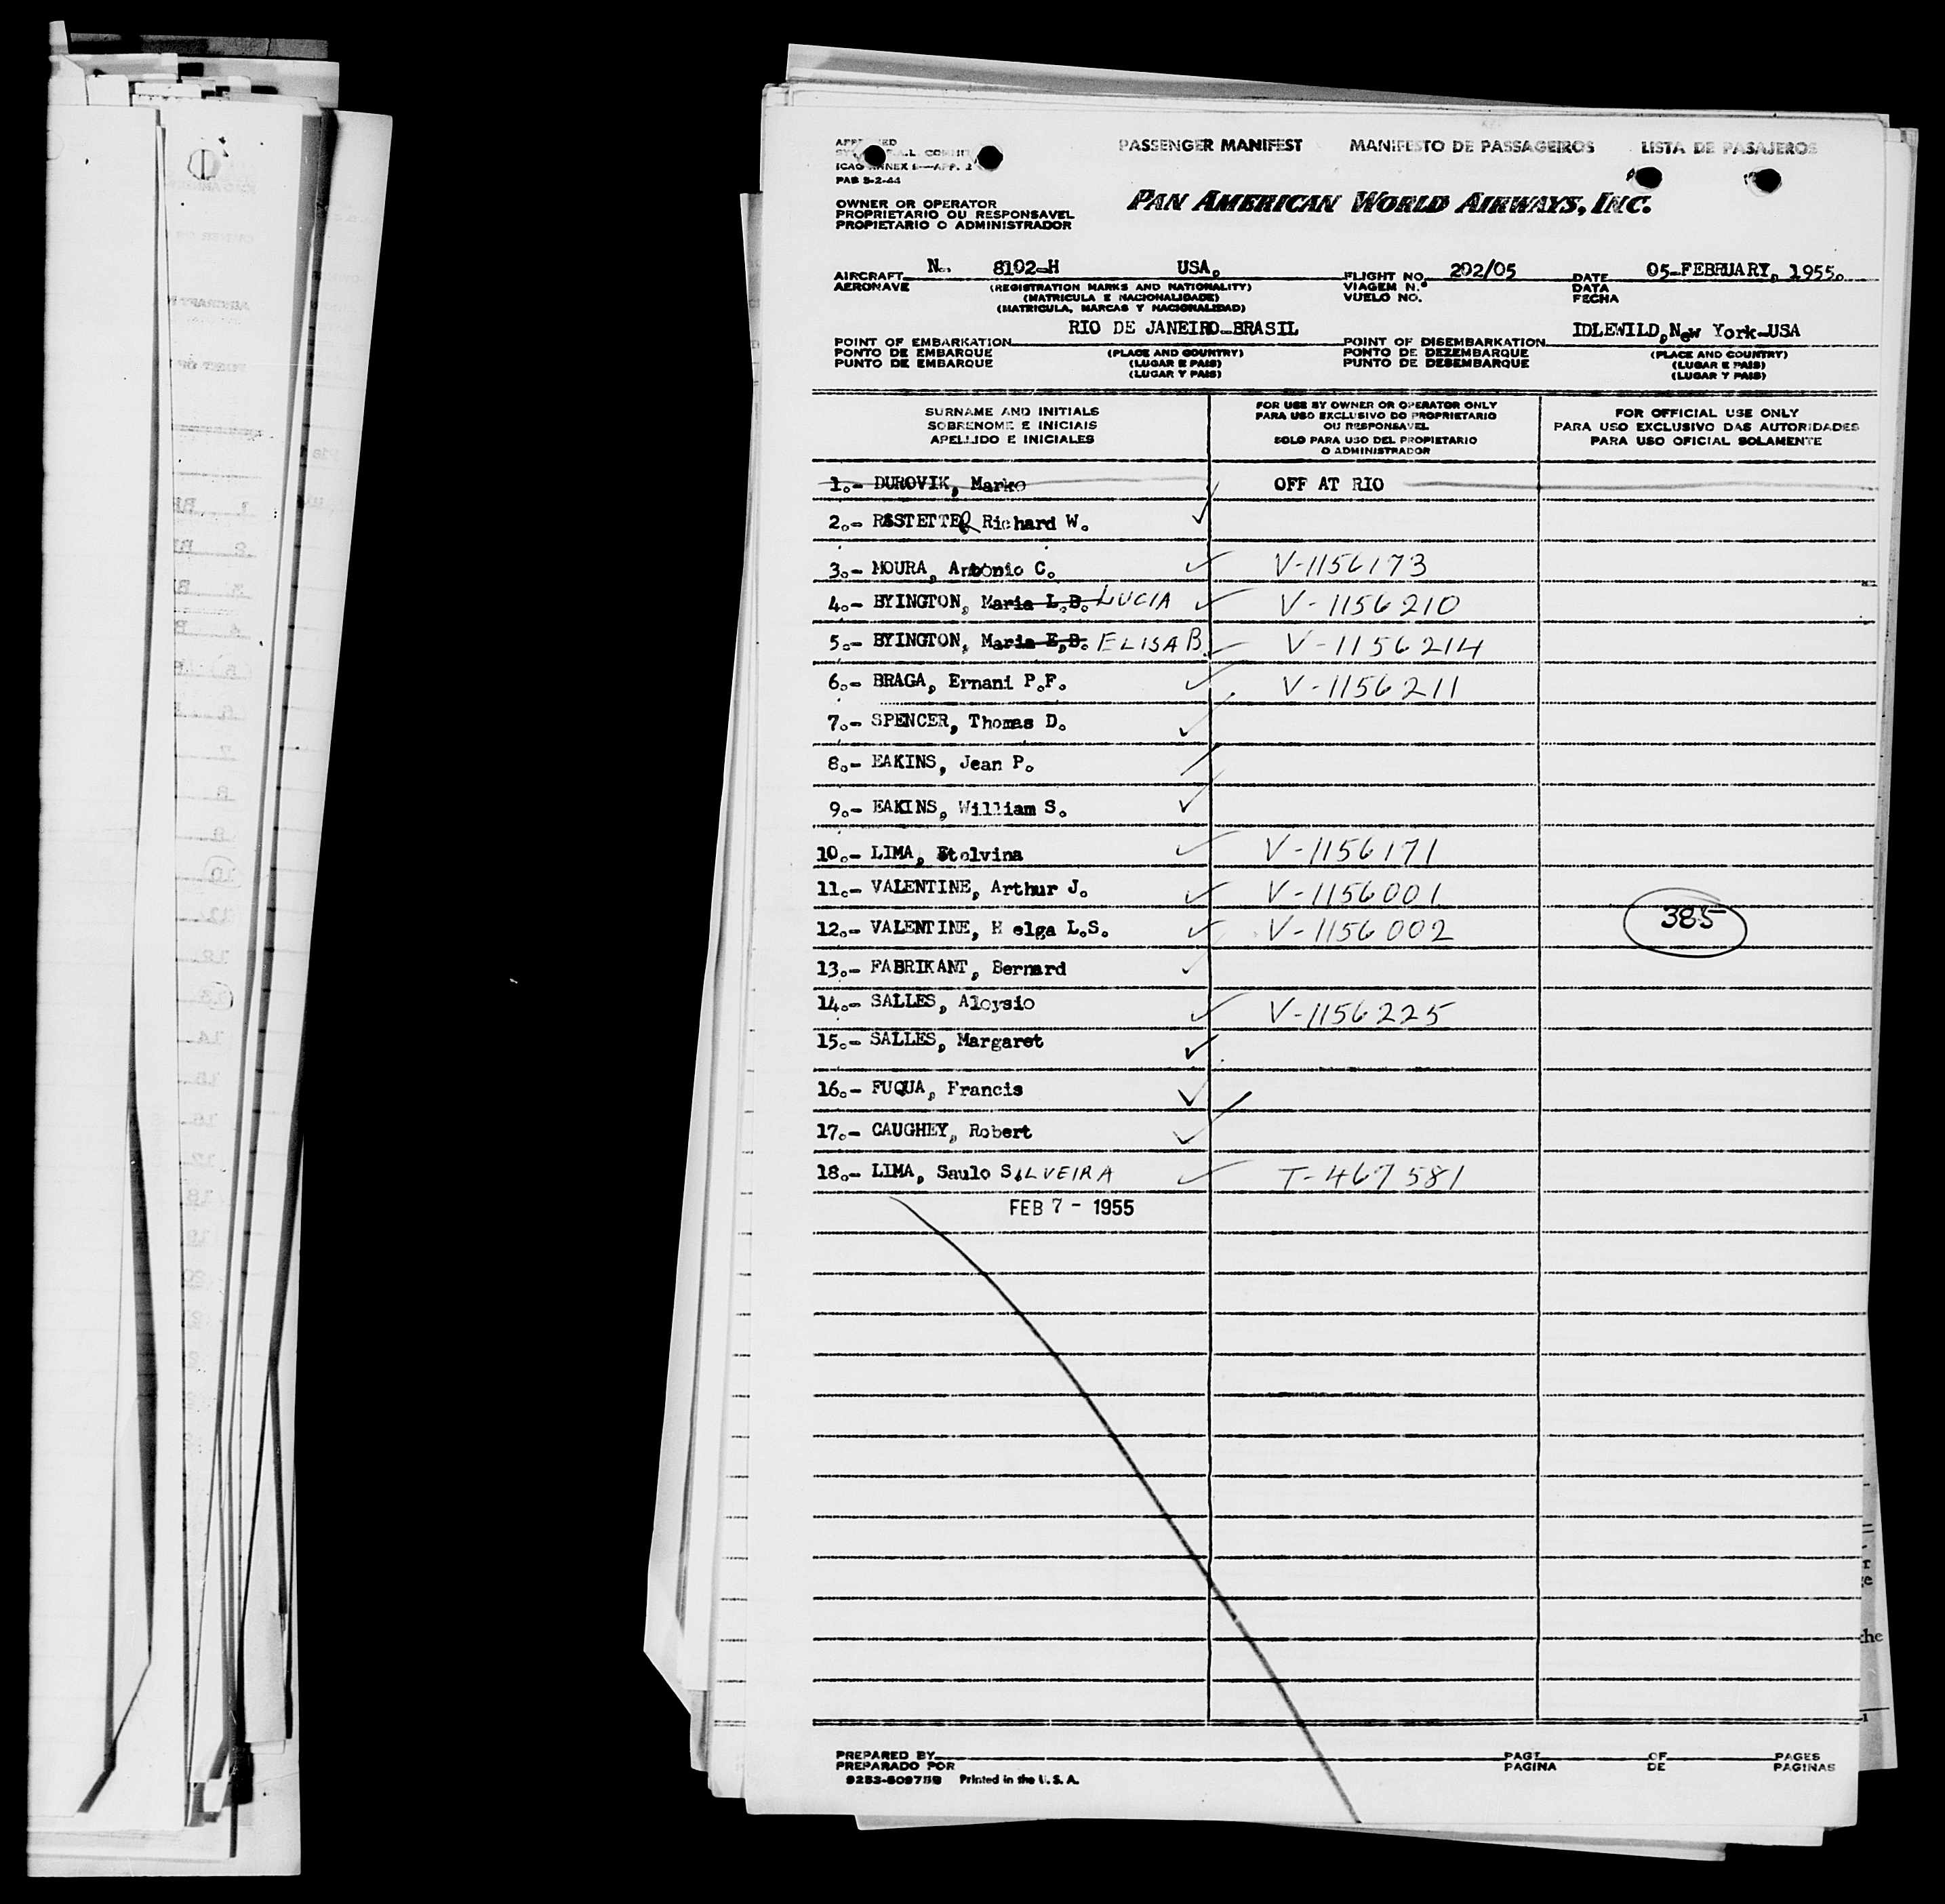 PASSENGER MANIFEST MANIFESTO DE PASSAGEIROS LISTA DE PASAJEROS
ICAO ANNEX
PAB 5-2-44
PAN AMERICAN WORLD AIRWAYS, INC.
OWNER OR OPERATOR
PROPRIETARIO OU RESPONSAVEL
PROPIETARIO O ADMINISTRADOR
AIRCRAFT No. 8102-H USA. FLIGHT NO. 202/05 DATE 05-FEBRUARY, 1955.
AERONAVE (REGISTRATION MARKS AND NATIONALITY) VIAGEM N.º DATA
(MATRICULA E NACIONALIDADE) VUELO NO. FECHA
(MATRICULA, MARCAS Y NACIONALIDAD)
RIO DE JANEIRO-BRASIL IDLEWILD, New York-USA
POINT OF EMBARKATION POINT OF DISEMBARKATION
PONTO DE EMBARQUE (PLACE AND COUNTRY) PONTO DE DEZEMBARQUE (PLACE AND COUNTRY)
PUNTO DE EMBARQUE (LUGAR E PAIS) PUNTO DE DESEMBARQUE (LUGAR E PAIS)
(LUGAR Y PAIS) (LUGAR Y PAIS)
SURNAME AND INITIALS
SOBRENOME E INICIAIS
APELLIDO E INICIALES
FOR USE BY OWNER OR OPERATOR ONLY
PARA USO EXCLUSIVO DO PROPRIETARIO
OU RESPONSAVEL
SOLO PARA USO DEL PROPIETARIO
O ADMINISTRADOR
FOR OFFICIAL USE ONLY
PARA USO EXCLUSIVO DAS AUTORIDADES
PARA USO OFICIAL SOLAMENTE
1.- DUROVIK, Marko OFF AT RIO
2.- Richard W.
3.- MOURA, Antonio C. V-1156173
4.- BYINGTON, Maria L.B. LUCIA V-1156210
5.- BYINGTON, Maria E.B. ELISA B. V-1156214
6.- BRAGA, Ernani P.F. V-1156211
7.- SPENCER, Thomas D.
8.- EAKINS, Jean P.
9.- EAKINS, William S.
10.- LIMA, Etolvina V-1156171
11.- VALENTINE, Arthur J. V-1156001
12.- VALENTINE, H elga L.S. V-1156002 385
13.- FABRIKANT, Bernard
14.- SALLES, Aloysio V-1156225
15.- SALLES, Margaret
16.- FUQUA, Francis
17.- CAUGHEY, Robert
18.- LIMA, Saulo SILVEIRA T-467581
FEB 7 - 1955
PREPARED BY PAGE OF PAGES
PREPARADO POR PAGINA DE PAGINAS
Printed in the U. S. A.